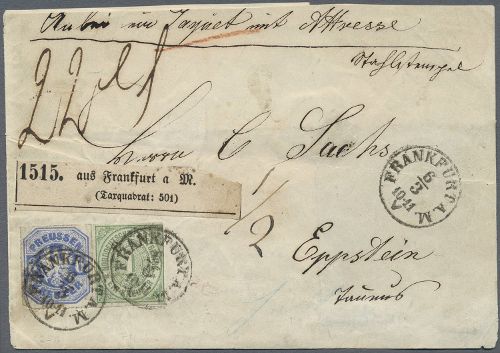 Anbei ein Paquet mit Adresse
Stahlstempel
Herrn C. Sachs
1515. aus Frankfurt a M.
(Taxquadrat: 501)
FRANKFURT A. M.
6/3
10-11
2
Eppstein
Taunus
PREUSSEN
FRANKFURT A. M.
FRANKFURT A. M.